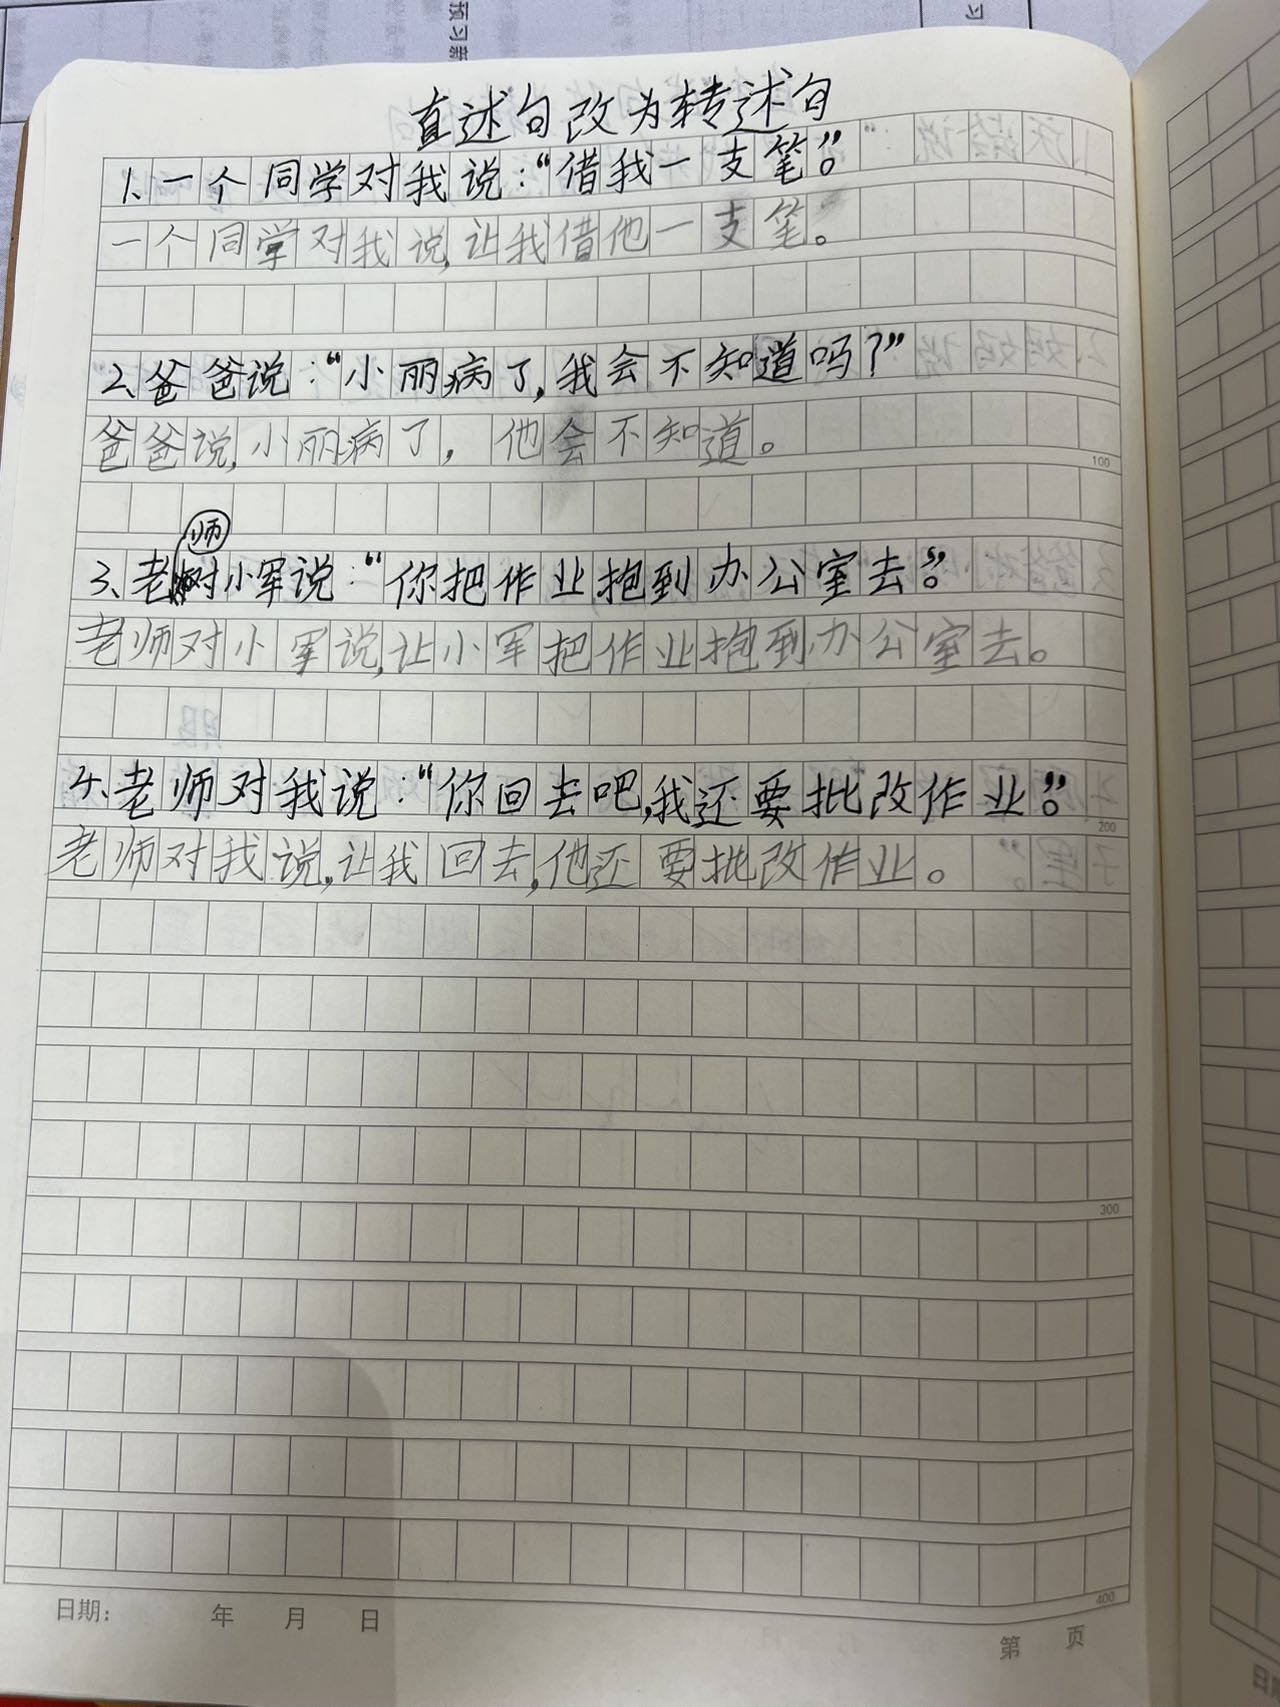 预习新
习
直述句改为转述句
1、一个同学对我说：“借我一支笔。”
一个同学对我说，让我借他一支笔。
2、爸爸说：“小丽病了，我会不知道吗？”
爸爸说，小丽病了，他会不知道。
100
师
3、老对小军说：“你把作业抱到办公室去。”
老师对小军说，让小军把作业抱到办公室去。
4、老师对我说：“你回去吧，我还要批改作业。”
200
老师对我说，让我回去，他还要批改作业。
300
400
日期： 年 月 日
第 页